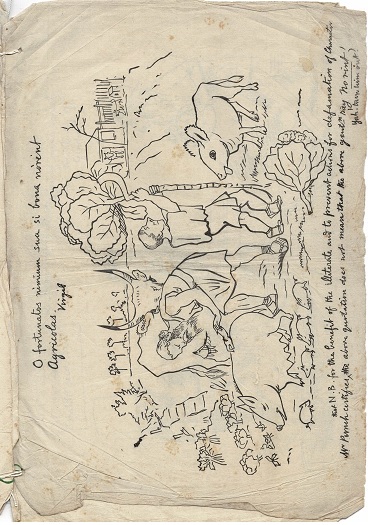 O fortunatos nimium sua si bona norint
Agricolas. Virgil
N.B. for the benefit of the illiterate and to prevent actions for defamation of Character
Mr certifies, the above quotation does not mean that the above gent. "May No rint"!
(yah! turn him out!)